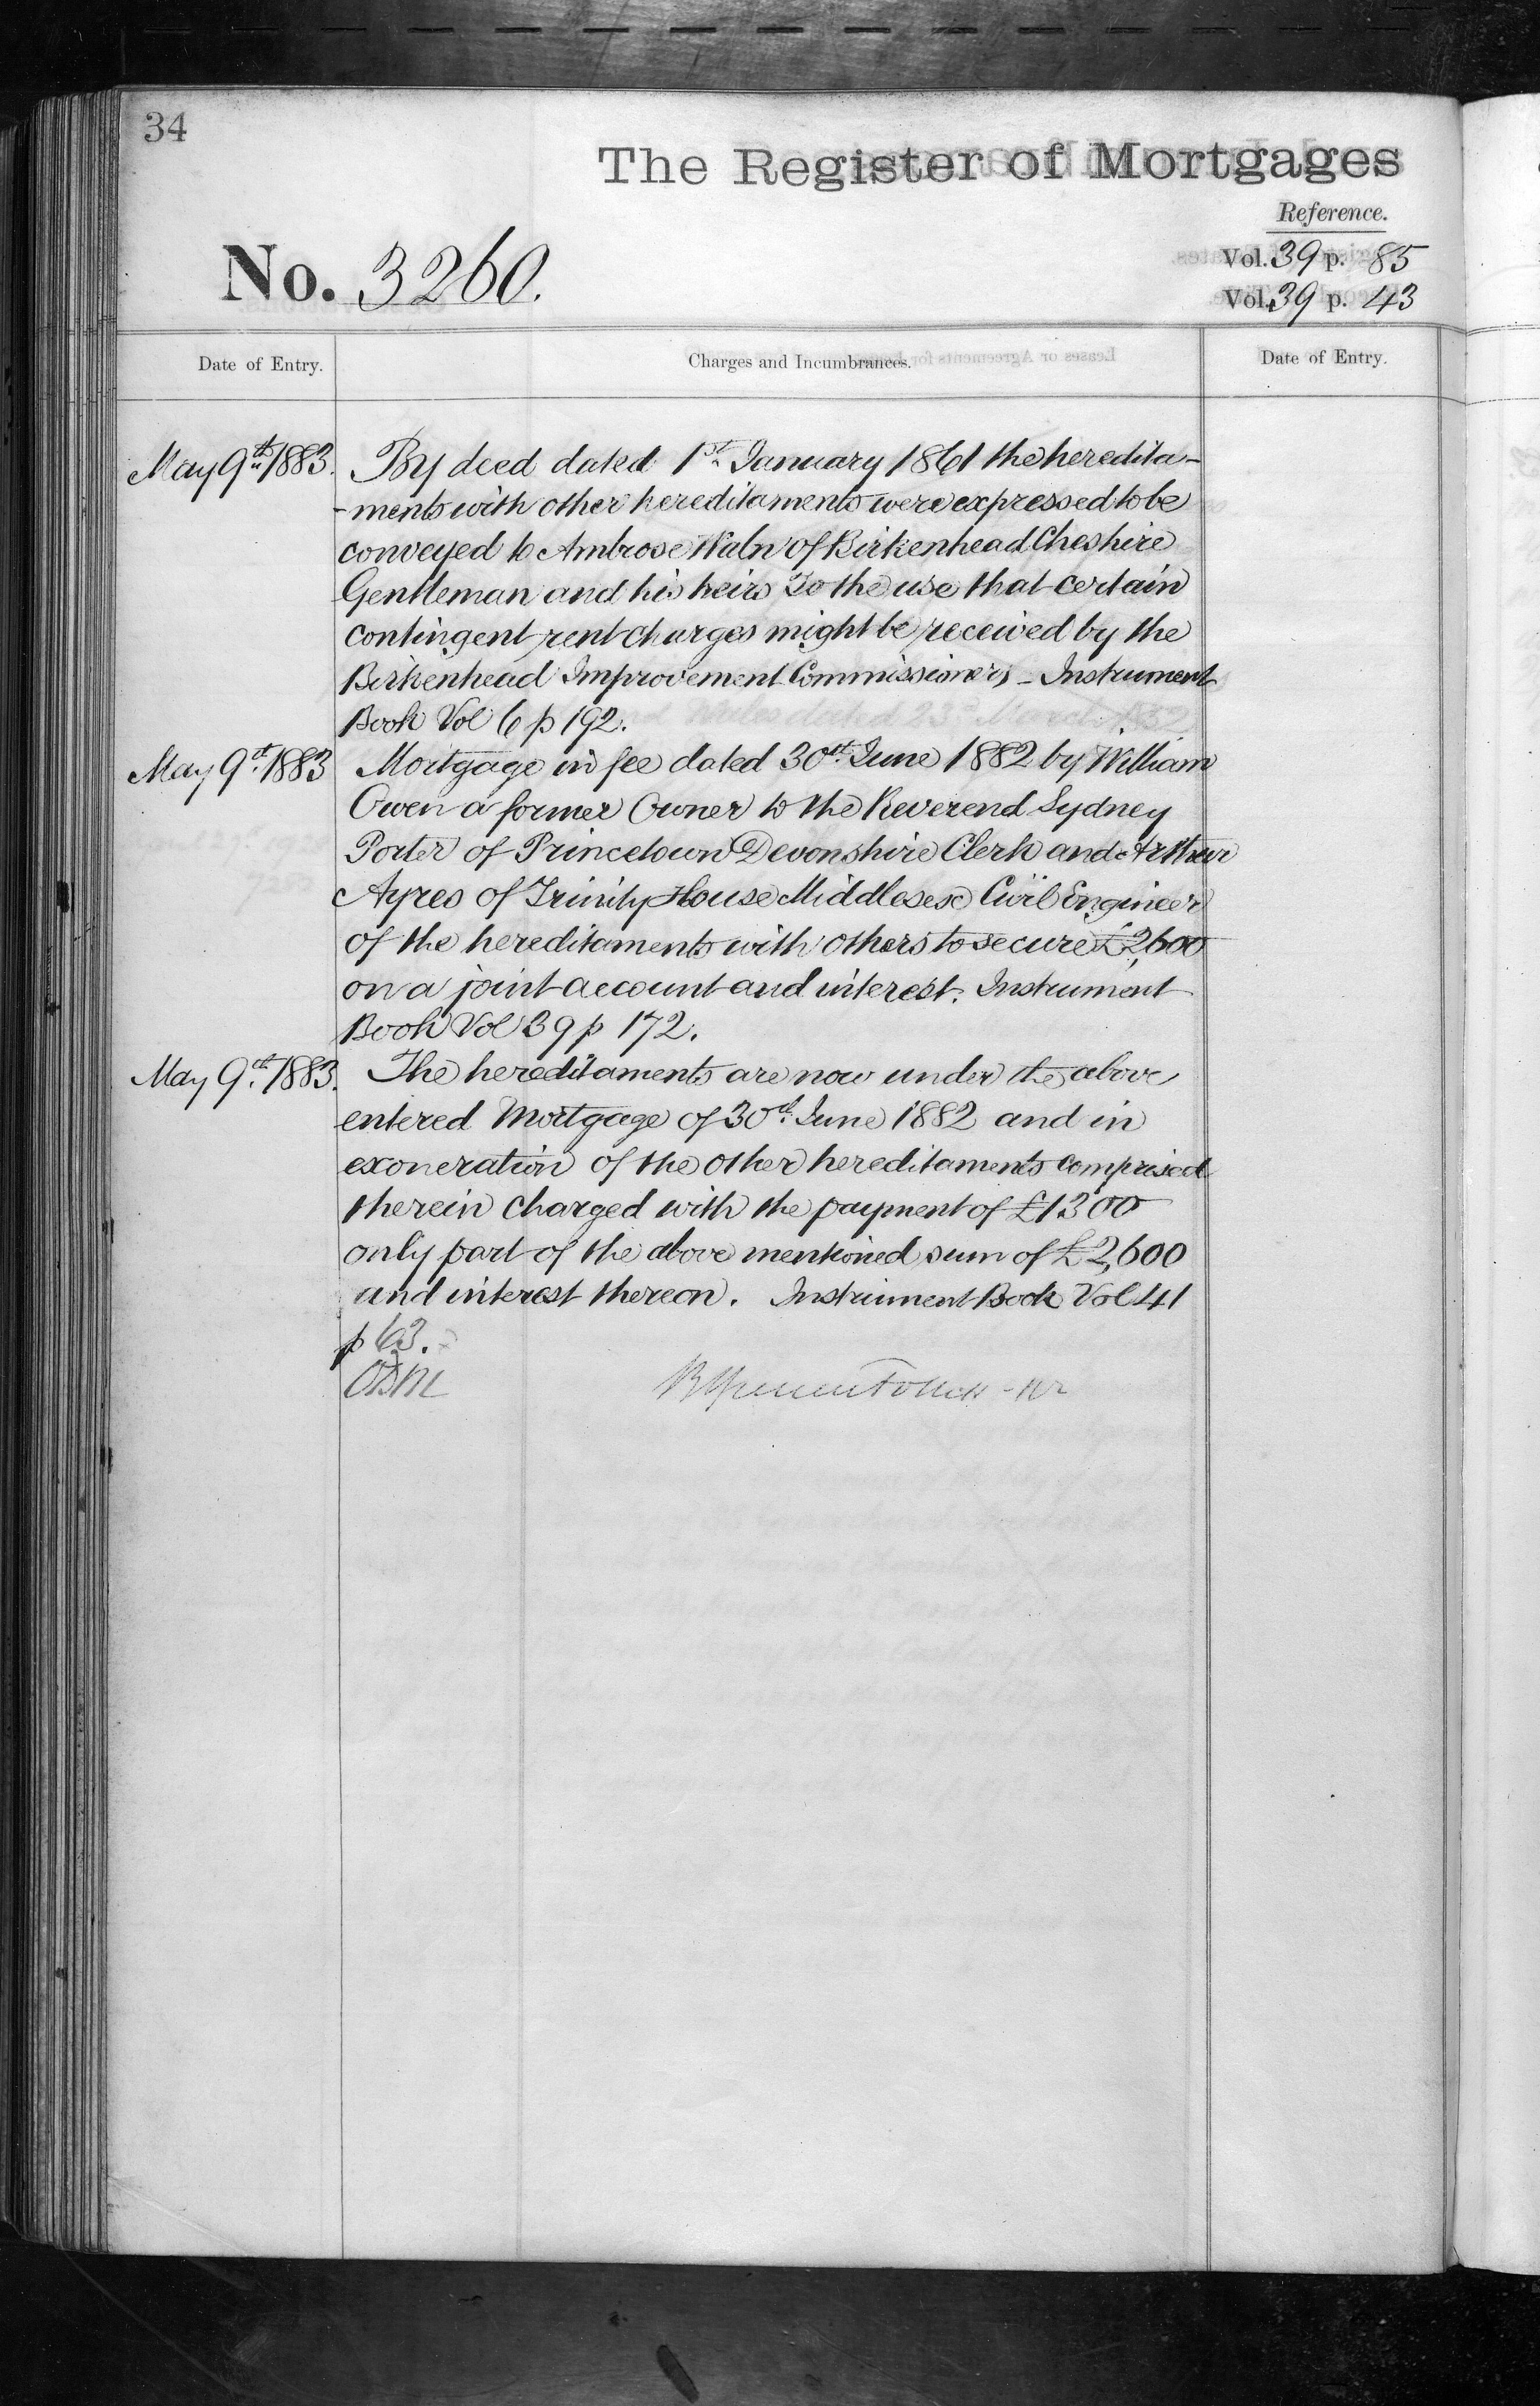 34
The Register of Mortgages
Reference.
No. 3260.
Vol. 39 p. 85
Vol. 39 p. 43
Date of Entry.
Charges and Incumbrances.
Date of Entry.
May 9th 1883. By deed dated 1st January 1861 the heredita-
-ments with other hereditaments were expressed to be
conveyed to Ambrose Waln of Birkenhead Cheshire
Gentleman and his heirs To the use that certain
contingent rent charges might be received by the
Birkenhead Improvement Commissioners - Instrument
Book Vol 6 p 192.
May 9th 1883 Mortgage in fee dated 30th June 1882 by William
Owen a former Owner to the Reverend Sydney
Porter of Princetown Devonshire Clerk and Arthur
Ayres of Trinity House Middlesex Civil Engineer
of the hereditaments with others to secure £2,600
on a joint account and interest. Instrument
Book Vol 39 p 172.
May 9th 1883. The hereditaments are now under the above
entered Mortgage of 30th June 1882 and in
exoneration of the other hereditaments comprised
therein charged with the payment of £1300
only part of the above mentioned sum of £2,600
and interest thereon. Instrument Book Vol 41
p 63.